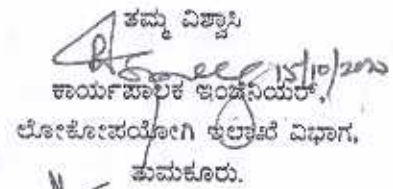 ತಮ್ಮ ವಿಶ್ವಾಸಿ
15/10/2020
ಕಾರ್ಯಪಾಲಕ ಇಂಜಿನಿಯರ್,
ಲೋಕೋಪಯೋಗಿ ಇಲಾಖೆ ವಿಭಾಗ,
ತುಮಕೂರು.